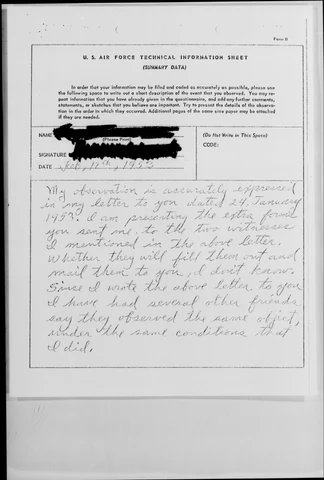 Form B
U. S. AIR FORCE TECHNICAL INFORMATION SHEET
(SUMMARY DATA)
In order that your information may be filed and coded as accurately as possible, please use
the following space to write out a short description of the event that you observed. You may re-
peat information that you have already given in the questionnaire, and add any further comments,
statements, or sketches that you believe are important. Try to present the details of the observa-
tion in the order in which they occurred. Additional pages of the same size paper may be attached
if they are needed.
NAME
(Please Print)
SIGNATURE
DATE Feb, 11th, 1953
(Do Not Write in This Space)
CODE:
My obseration is accurately expressed
in my letter to you dated 24 January
1953. I am presenting the extra forms
you sent me. to the two witnesses
I mentioned in the above letter.
Whether they will fill them out and
mail them to you, I don't know.
Since I wrote the above letter to you
I have had several other friends
say they observed the same object,
under the same conditions that
I did.